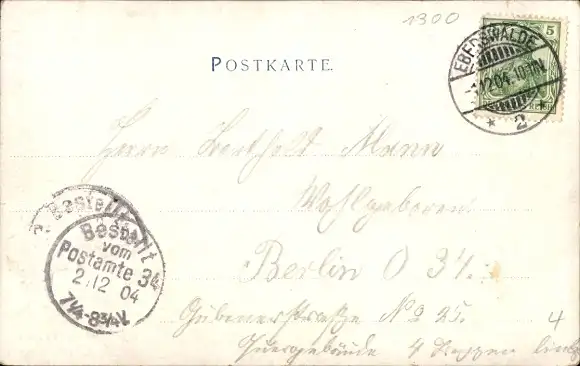 1300
POSTKARTE.
5
EBERSWALDE
-1.12.04. 10-11V.
* 2 *
Herrn Berthold Mann
Wohlgeboren
Berlin O 34.
No 25.
4
Quergebäude 4 Treppen links
Bestellt
Bestellt
vom
Postamte 34
2.12 04
7¼-8¾V